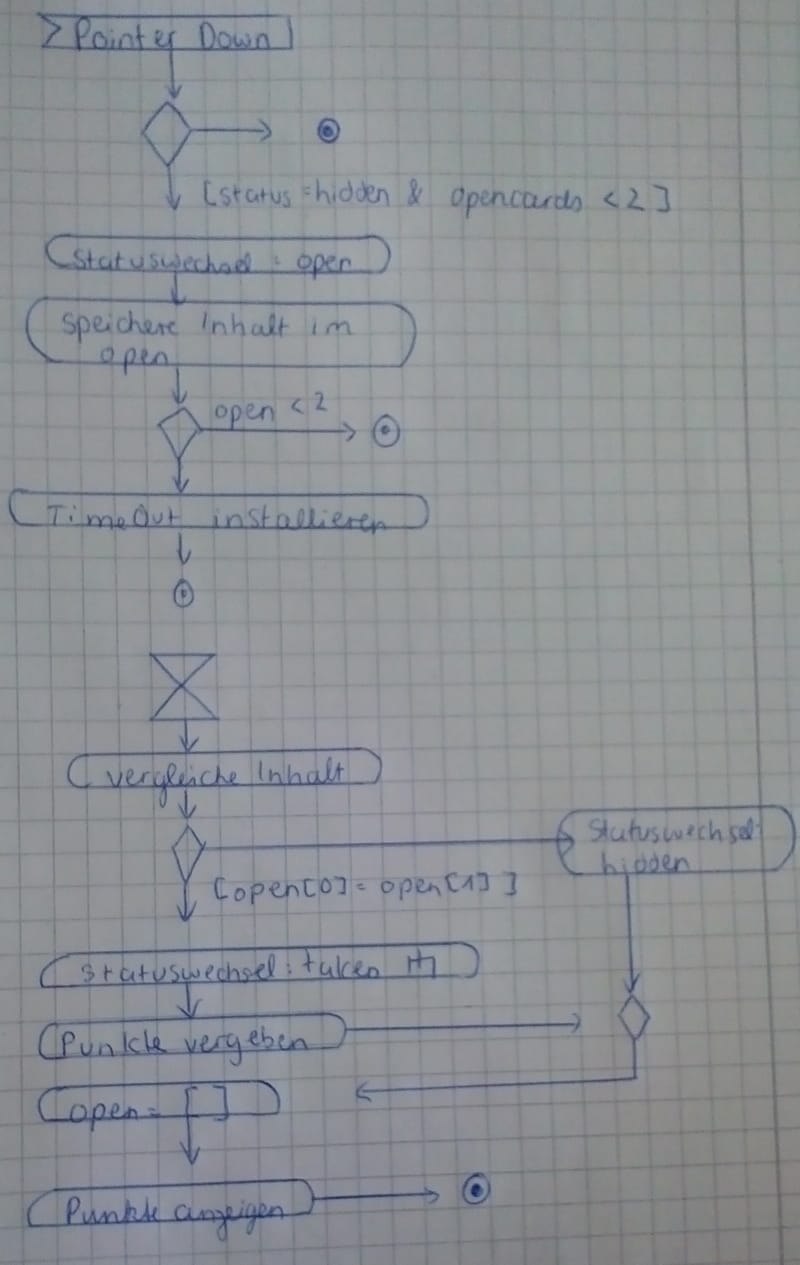 Pointer Down
[status=hidden & opencards <2]
Statuswechsel: open
Speichere Inhalt im
open
open <2
TimeOut installieren
vergleiche Inhalt
Statuswechsel:
hidden
[open[0]= open[1]]
Statuswechsel: taken
Punkte vergeben
open= [ ]
Punkte anzeigen